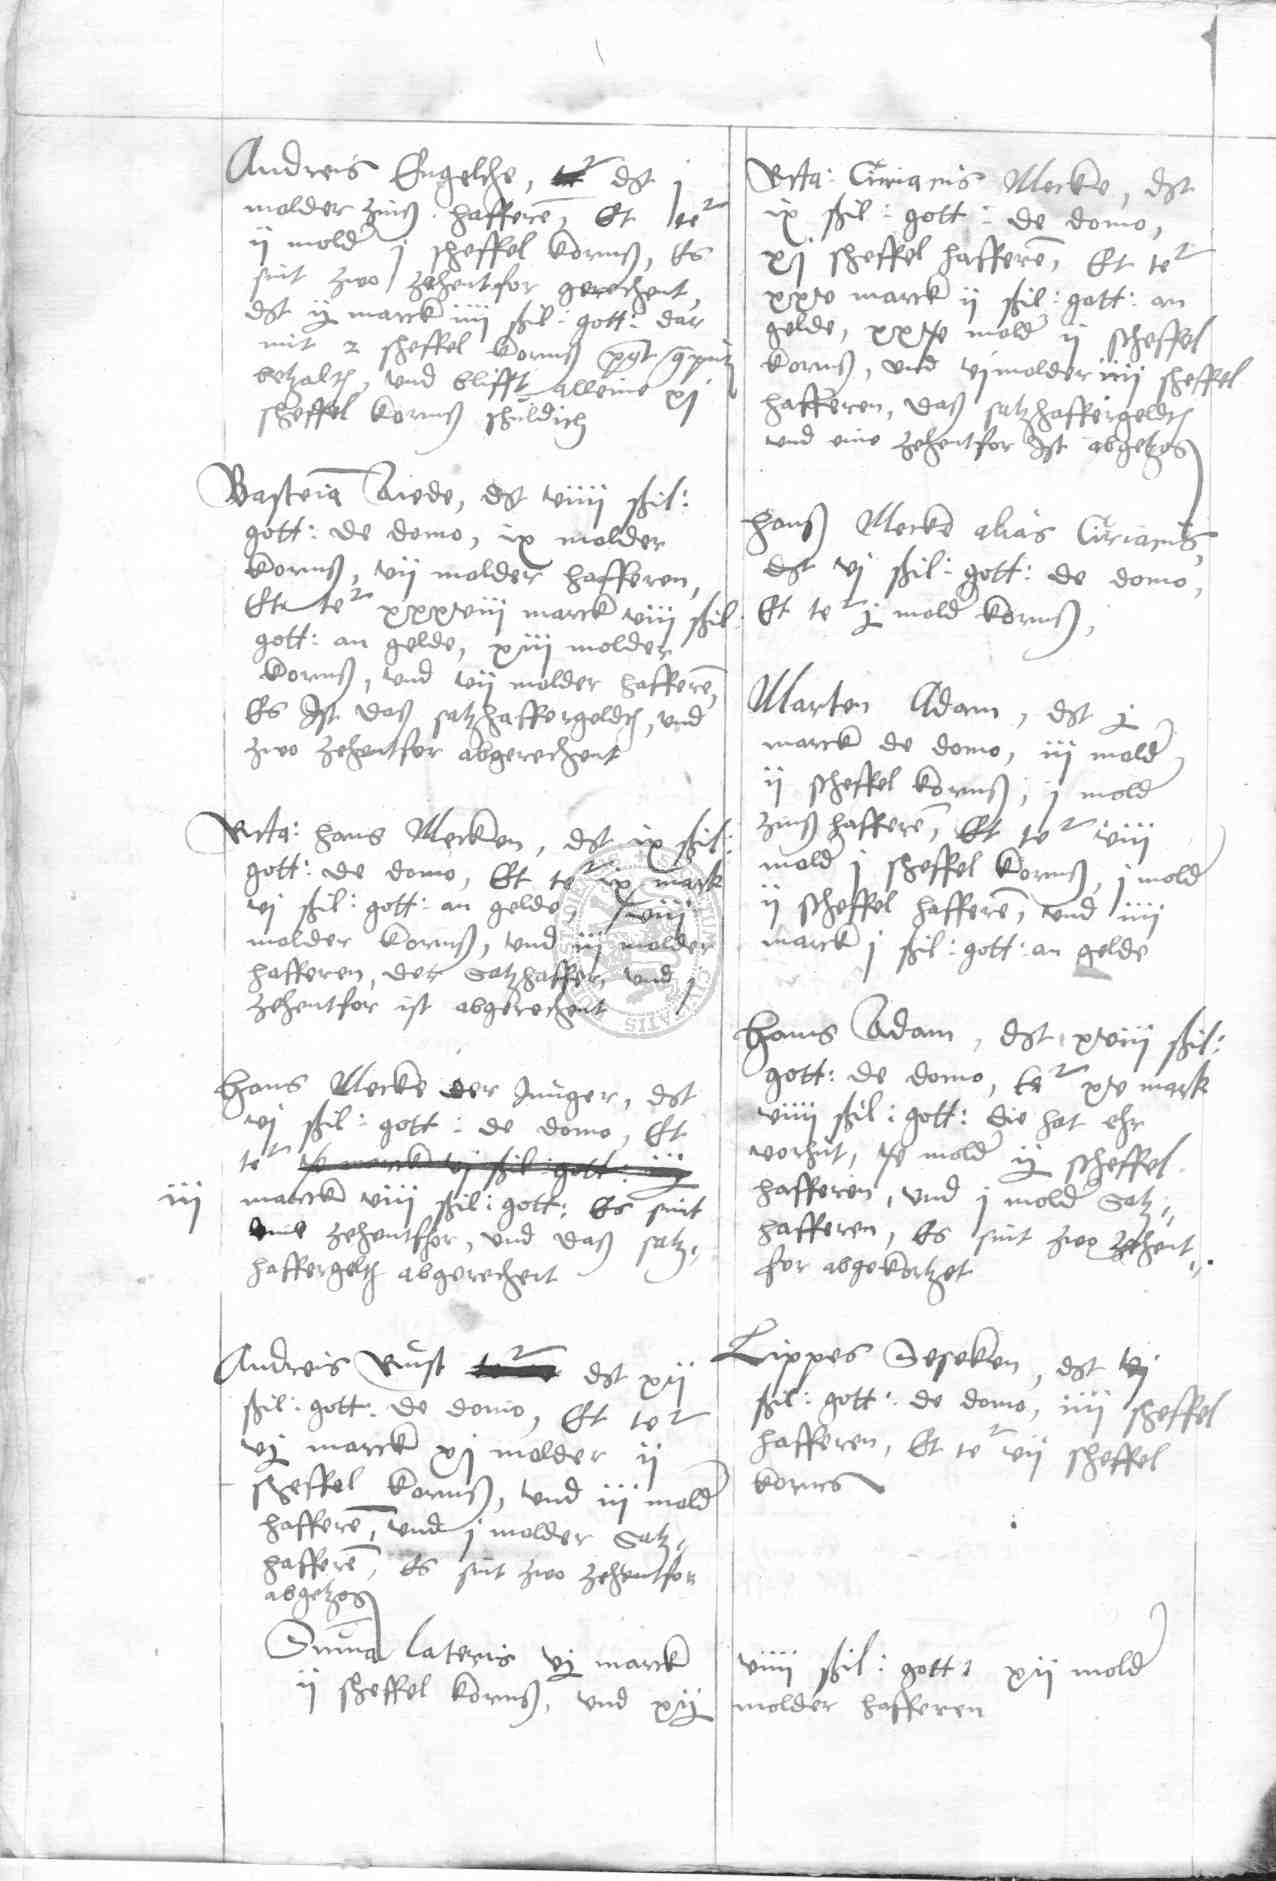 Andreis Engelche, dst j
molder zinß hafferē, Et te2
ij mold j scheffel Kornß, Es
sint zwo zehentfor gerechent,
dst ij marck iiij ßil: gott: dar
mit 2 scheffel Kornß
betzalt, und blifft alleine xj
scheffel Kornß schuldich
Bastian Riede, dst viiij ßil:
gott: de domo, ix molder
Kornß, vij molder hafferen,
Et te2 xxxviij marck viij ßil:
gott: an gelde, xiij molder
Kornß, und vij molder hafferē,
Es Ist daß satzhaffergeldt, und
zwo zehentfor abgerechent
Rcta: hans Mecken, dst ix ßil:
gott: de domo, Et te2 ix marck
vj ßil: gott: an gelde viij
molder Kornß, und iij molder
hafferen, der Satzhaffer, und j
zehentfor ist abgerechent
Hans Mecke der Junger, dst
vj ßil: gott: de domo, Et
te2 marck vj ßil: gott: iij
iij marck viij ßil: gott: Es sint
eine zehentfhor, und daß satz„
haffergelt abgerechent
Andreis Rust dst xij
ßil: gott: de domo, Et te2
vj marck xj molder ij
scheffel Kornß, und iij mold
hafferē, und j molder Satz„
hafferē, Es sint zwo zehentfor
abgetzog
Suma Lateris vj marck
ij scheffel Kornß, und xij
Rcta: Ciriacus Mecke, dst
ix ßil: gott: de domo,
xj scheffel hafferē, Et te2
xxv marck ij ßil: gott: an
gelde, xxv mold ij scheffel
Kornß, und vj molder iiij scheffel
hafferen, daß satzhaffergeldt
und eine zehentfor Ist abgetzog
Hanß Mecke alias Ciriacus,
dst vj ßil: gott: de domo,
Et te2 ij mold Kornß,
Marten Adam, dst ij
marck de domo, iij mold
ij scheffel Kornß, j mold
zinß hafferē, Et te2 viij
mold j scheffel Kornß, j mold
ij scheffel hafferē, und iiij
marck j ßil: gott: an gelde
Hans Adam, dst xviij ßil:
gott: de domo, te2 xv marck
viiij ßil: gott: die hat ehr
vorhut, v mold ij scheffel
hafferen, und j mold Satz„
hafferen, Es sint zwo zehent„
for abgekortzet
Lippes Deseken, dst vj
ßil: gott: de domo, iiij scheffel
hafferen, Et te2 vij scheffel
Kornes
viiij ßil: gott: xij mold
molder hafferen